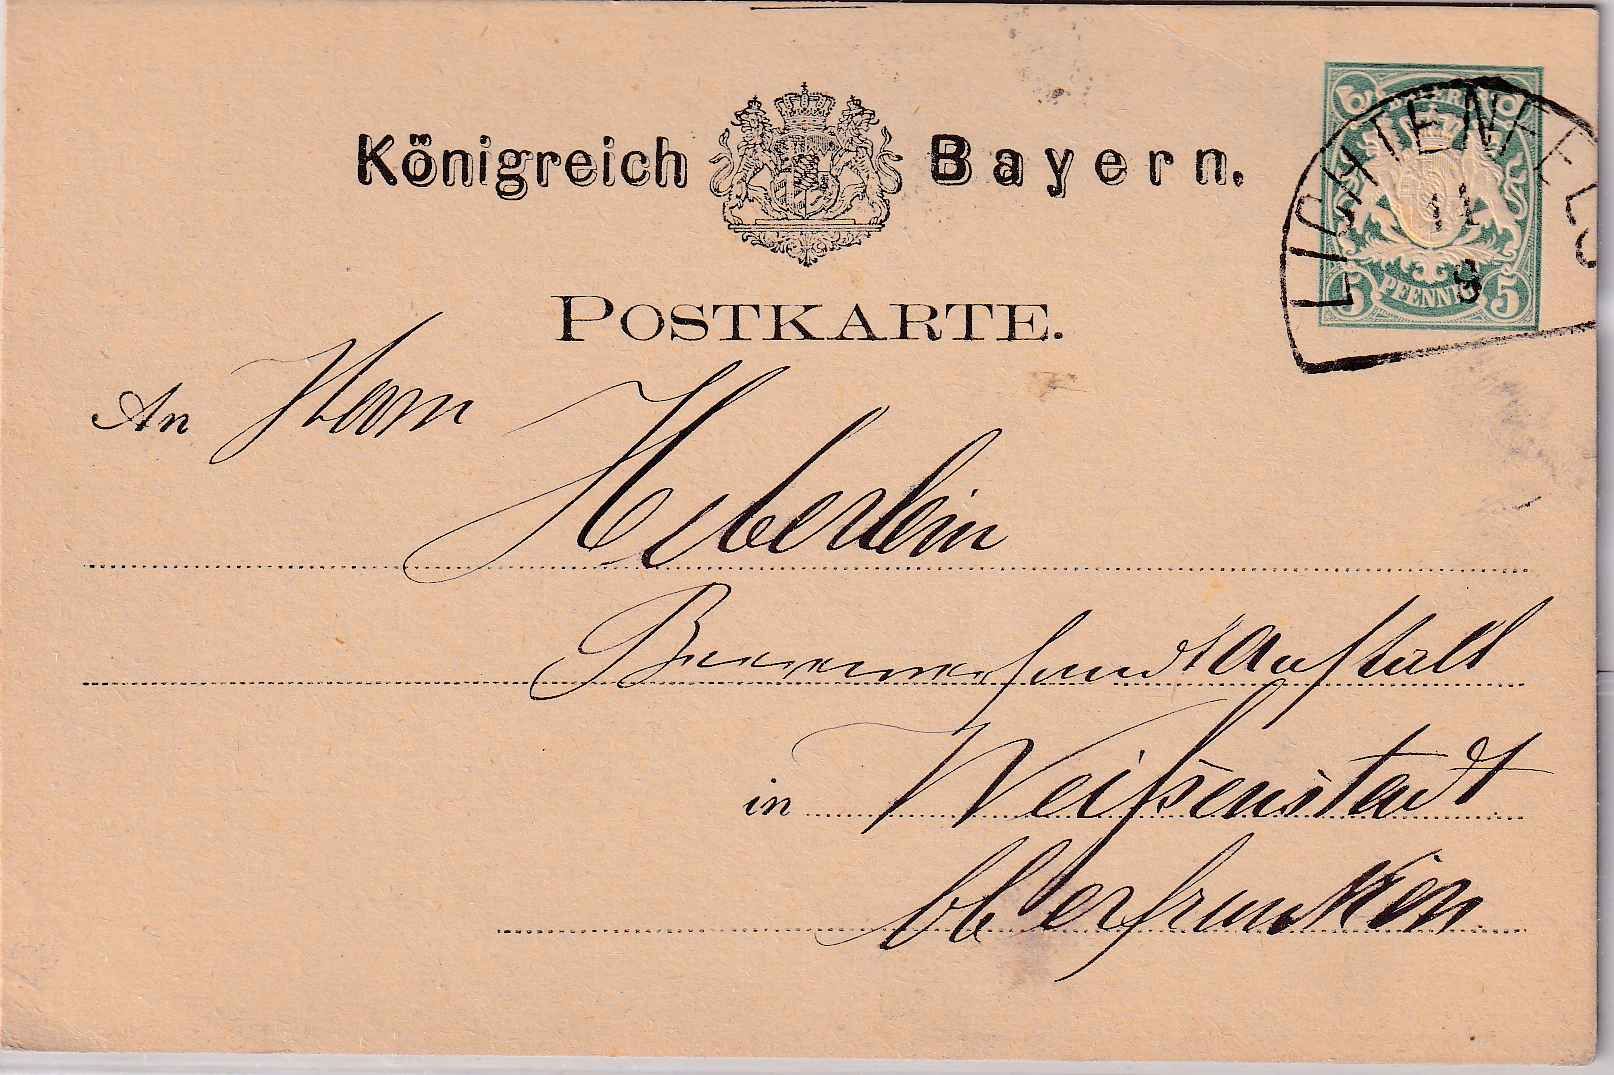 Königreich Bayern.
BAYERN
5 PFENNIG 5
LICHTENFELS
11
8
POSTKARTE.
An Herrn
Heberlein
in Weißenstadt
Oberfranken.